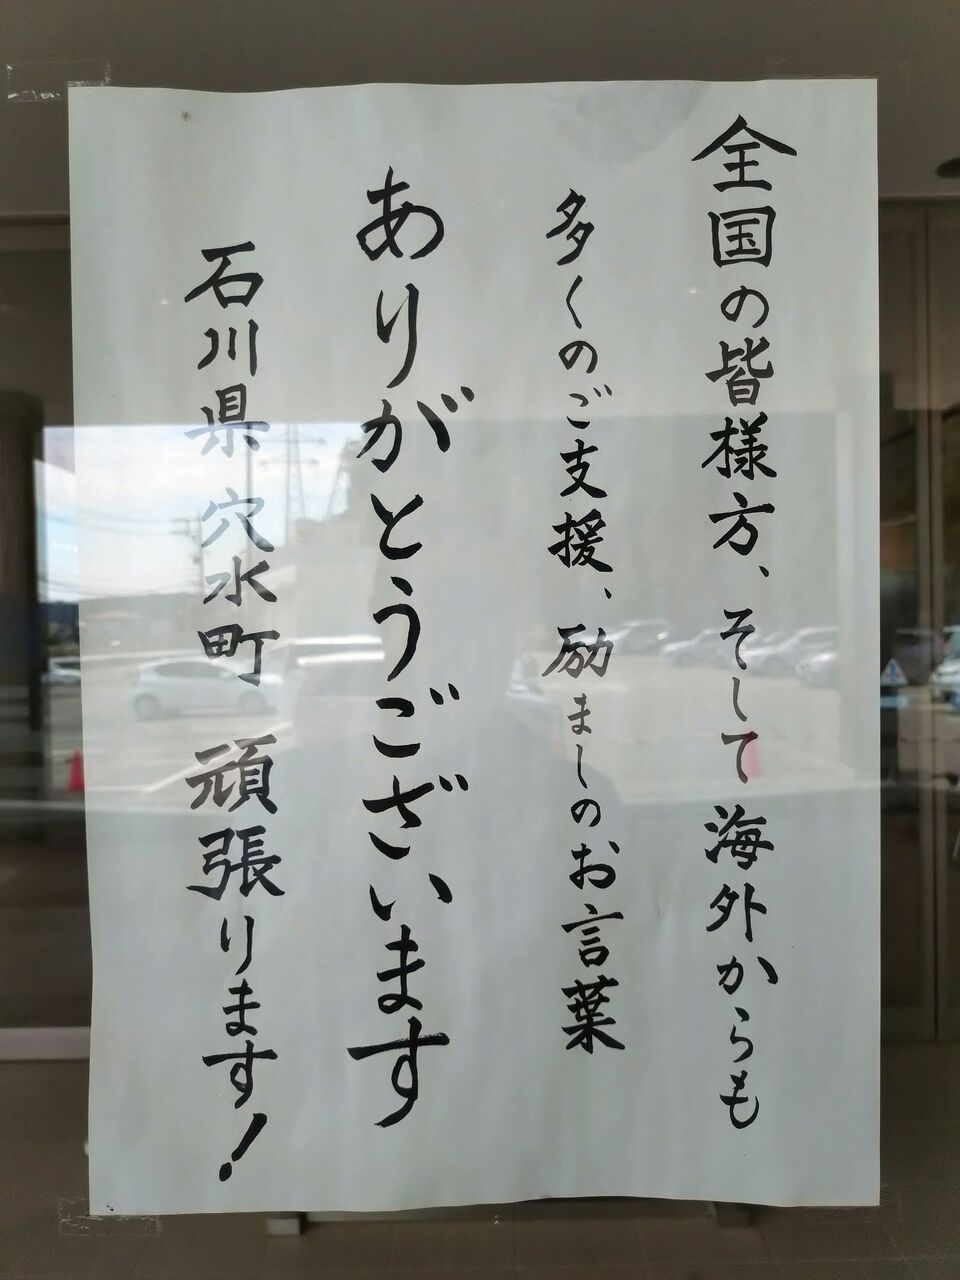 全国の皆様方、そして海外からも
多くのご支援、励ましのお言葉
ありがとうございます
石川県 穴水町 頑張ります!